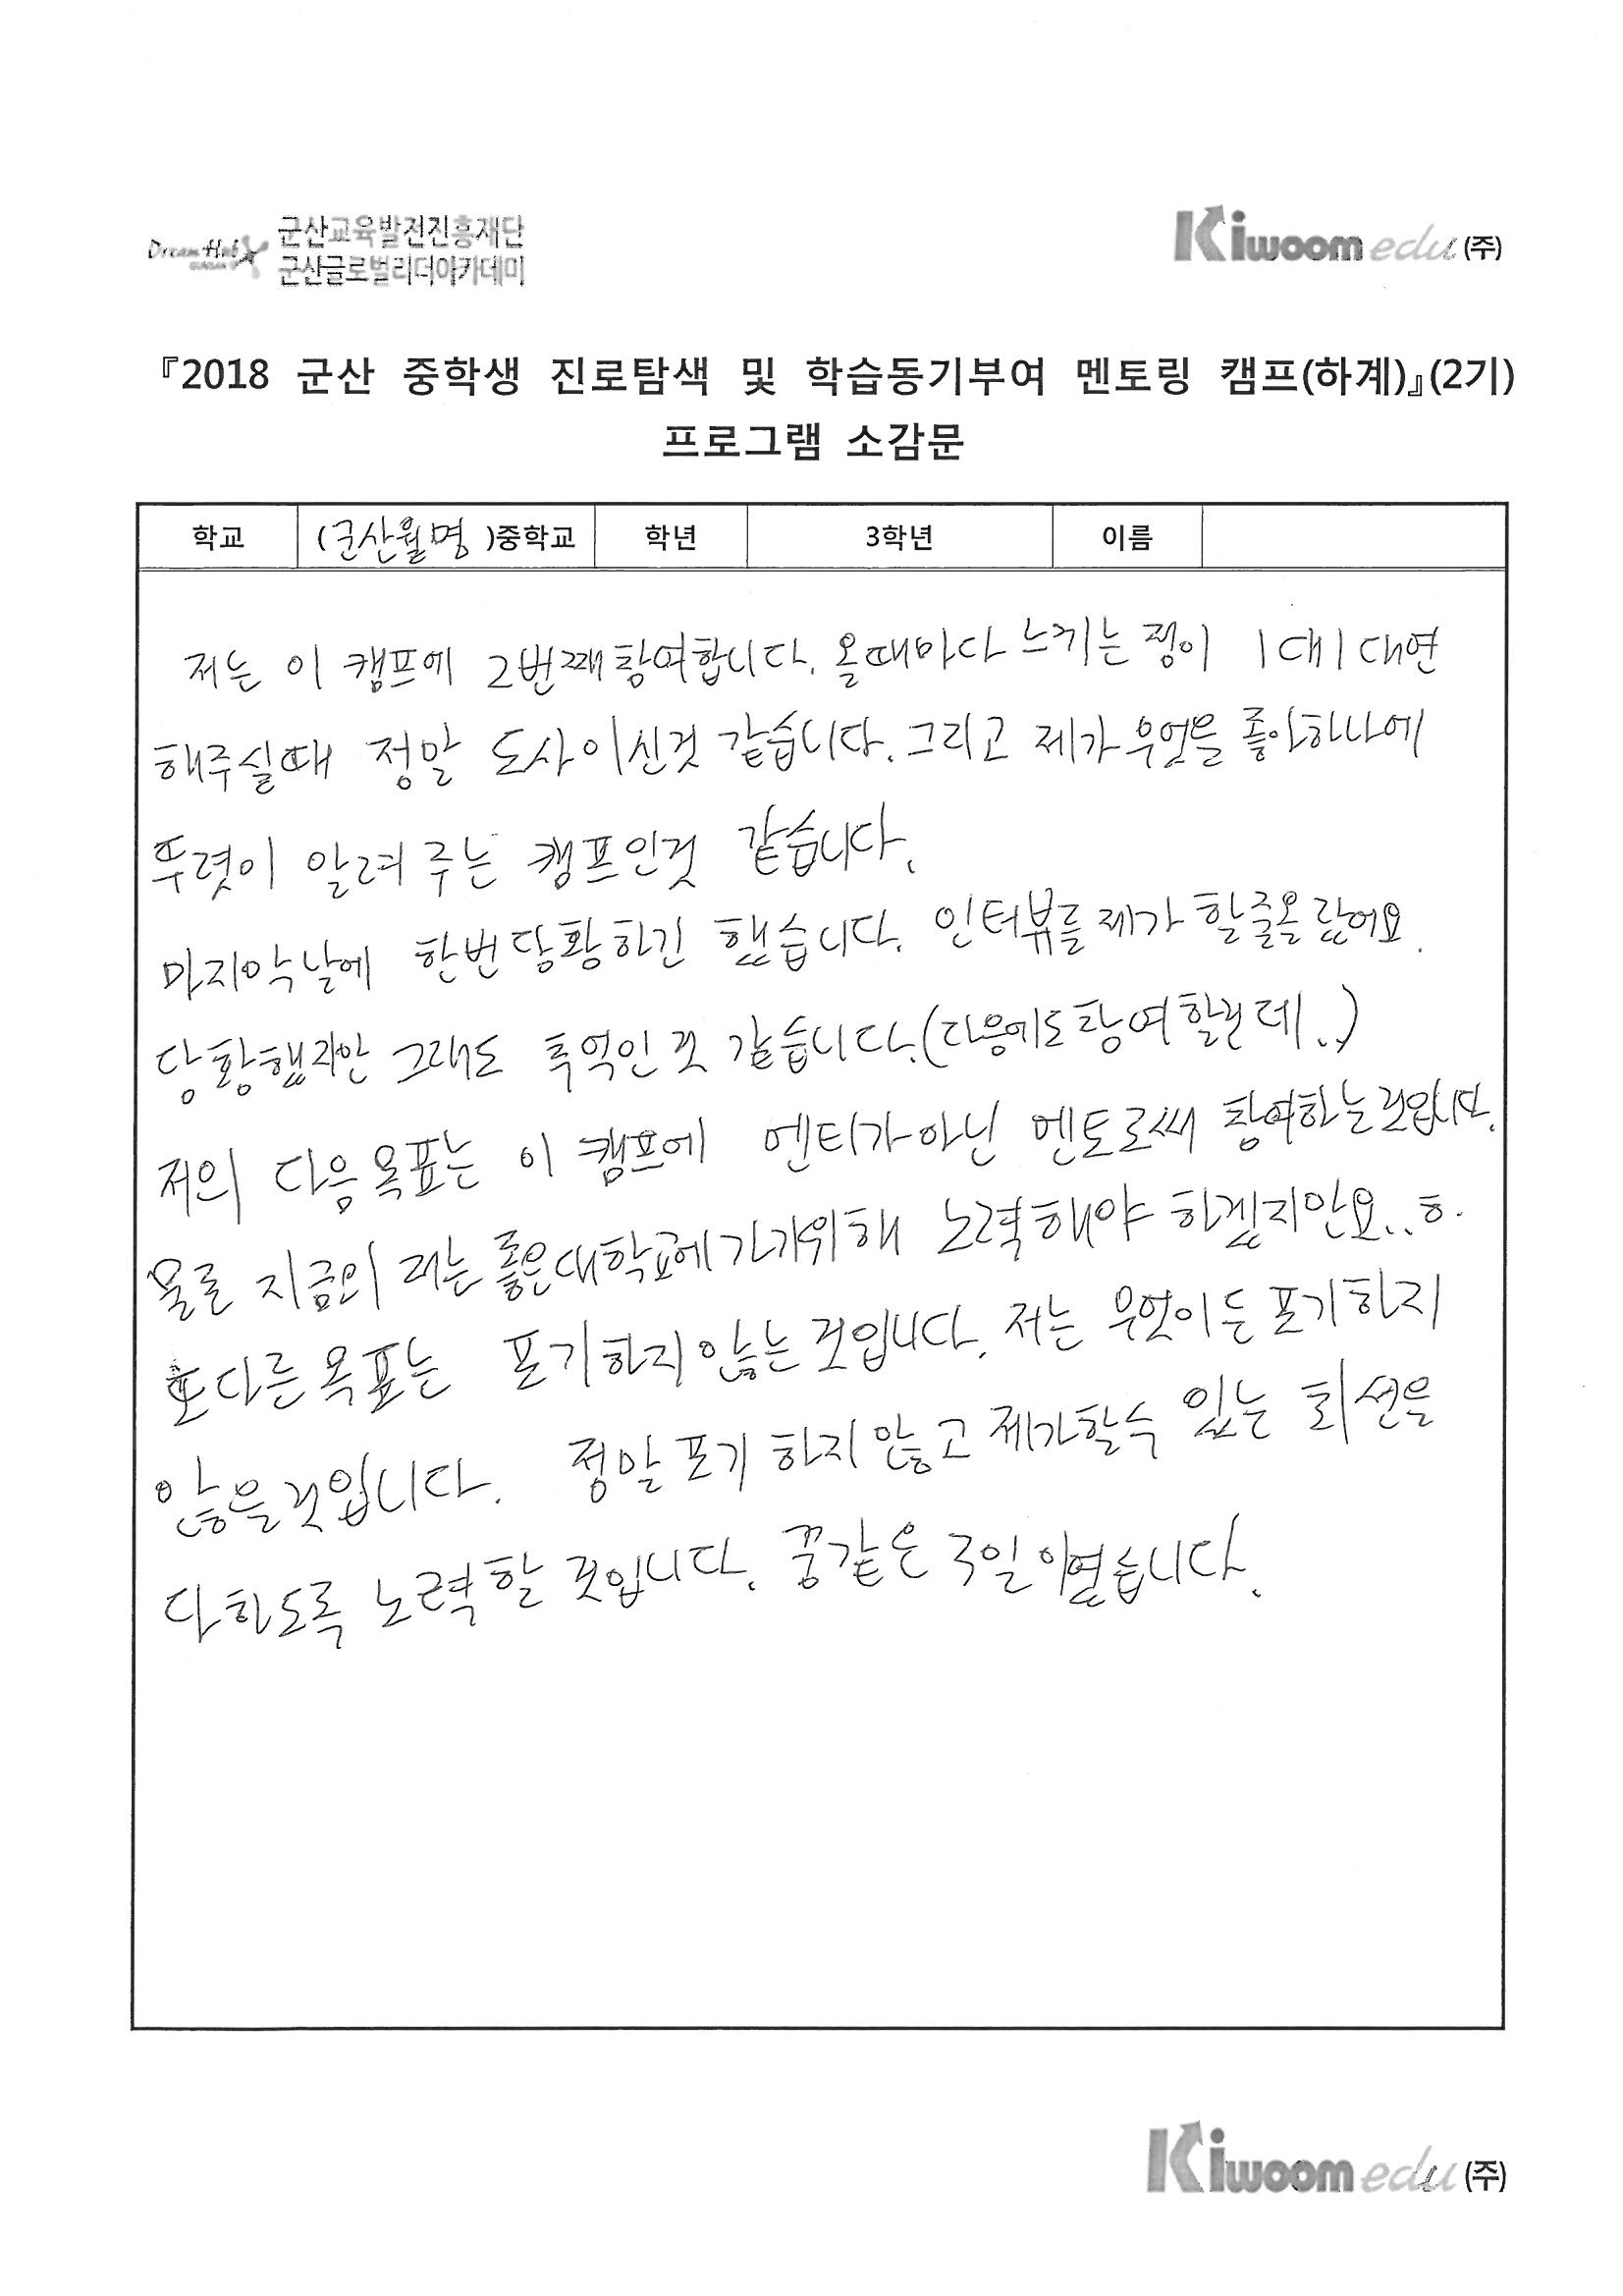 Dream Hub 군산교육발전진흥재단
GUNSAN 군산글로벌리더아카데미
Kiwoom edu (주)
『2018 군산 중학생 진로탐색 및 학습동기부여 멘토링 캠프(하계)』(2기)
프로그램 소감문
학교 (군산월명)중학교 학년 3학년 이름
저는 이 캠프에 2번째 참여합니다. 올때마다 느끼는 점이 1대1 대면
해주실때 정말 도사이신것 같습니다. 그리고 제가 무엇을 좋아하나에
뚜렷이 알려 주는 캠프인것 같습니다.
마지막날에 한번 당황하긴 했습니다. 인터뷰를 제가 할줄을 랐어요.
당황했지만 그래도 추억인 것 같습니다. (다음에도 참여할런데..)
저의 다음 목표는 이 캠프에 멘티가 아닌 멘토로써 참여하는 것입니다.
물론 지금의 저는 좋은 대학교에 가기위해 노력해야 하겠지만요..ㅎ.
또다른 목표는 포기하지 않는 것입니다. 저는 무엇이든 포기하지
않을 것입니다. 정말 포기 하지 않고 제가 할수 있는 최선을
다하도록 노력할 것입니다. 꿈같은 3일이였습니다.
Kiwoom edu (주)